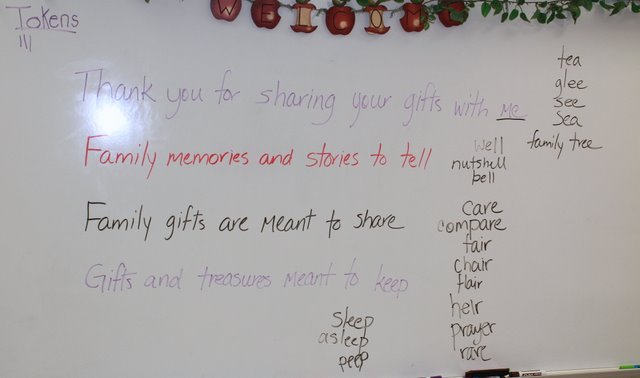 WELCOME
Tokens
|||
Thank you for sharing your gifts with me
tea
glee
see
sea
family tree
Family memories and stories to tell
well
nutshell
bell
Family gifts are meant to share
care
compare
fair
chair
flair
heir
prayer
rare
Gifts and treasures meant to keep
sleep
asleep
peep